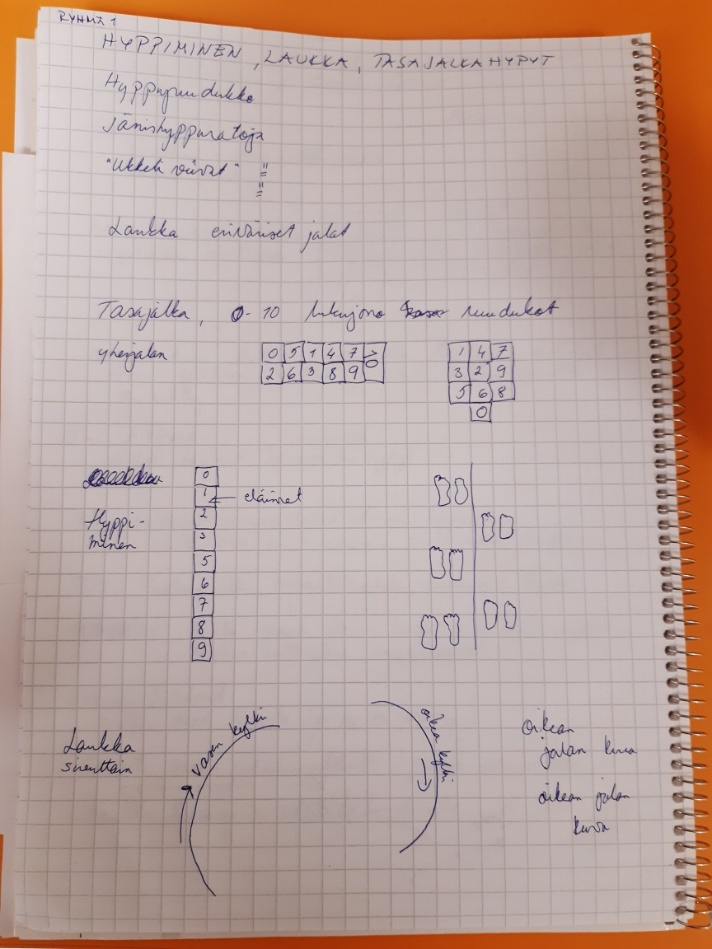 RYHMÄ 1
HYPPIMINEN, LAUKKA, TASAJALKAHYPYT
Hyppyruudukko
Jänishyppyratoja
"Ukkeli viivat" "
"
Laukka eriväriset jalat
Tasajalka, 0-10 lukujono ruudukot
yhenjalan
0 5 1 4 7 10
2 6 3 8 9
1 4 7
3 2 9
5 6 8
0
0
1 ← eläimet
2
3
5
6
7
8
9
Hyppi-
minen
Laukka
sivuttain
vasen kylki
oikea kylki
oikean
jalan kuva
oikean jalan
kuva